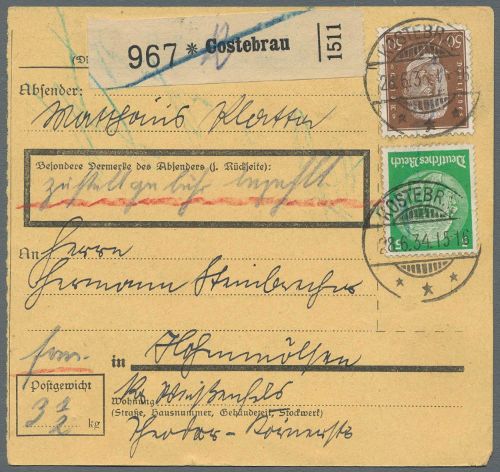 967 * Costebrau 1511
12
Absender:
Matthäus Klatta
Besondere Vermerke des Absenders (s. Rückseite):
zustellgebühr bezahlt
An Herrn
Hermann Steinbrecher
frei.
in Hohenmölsen
Postgewicht
3 1/2 kg
Kr. Weißenfels
Wohnung
(Straße, Hausnummer, Gebäudeteil, Stockwerk)
Theodor-Körnerstr
50 50
KOSTEBR
28.6.34
Deutsches Reich
5
KOSTEBR
28.6.34.15-16